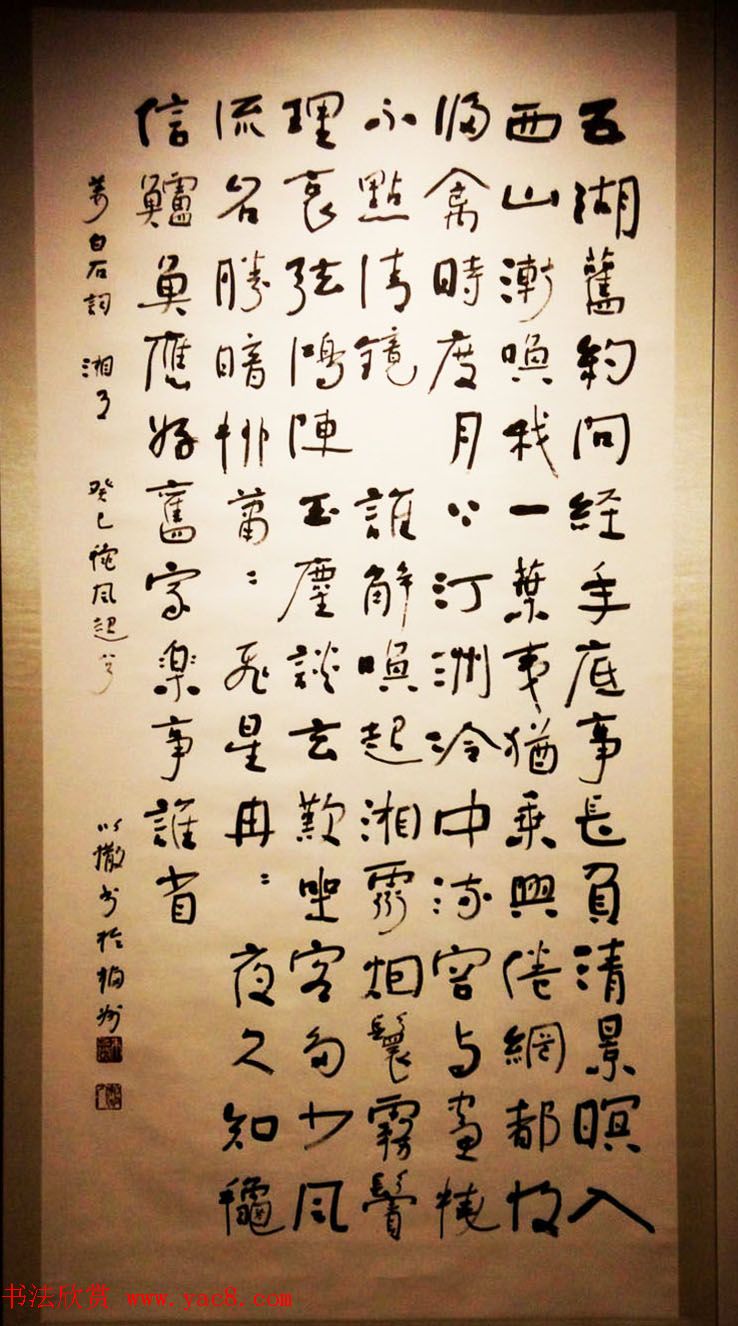 五湖舊約問経年底事長負清景暝入
西山漸喚我一葉夷猶乗興倦網都收
歸禽時度月上汀洲冷中流容与畫橈
不點清鏡 誰解喚起湘靈烟鬟霧鬢
理哀弦鴻陣玉麈談玄歎坐客多少風
流名勝暗柳蕭〻飛星冉〻夜久知龝
信鱸魚應好舊家楽事誰省
姜白石詞 湘月 癸巳龝風起兮 以撒書於
书法欣赏 www.yac8.com